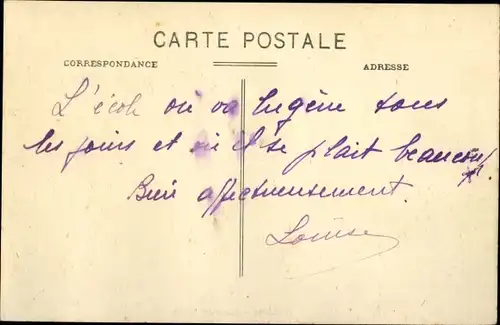 CARTE POSTALE
CORRESPONDANCE
ADRESSE
L'école où va Eugène tous
les jours et où il se plait beaucoup.
Bien affectueusement.
Louise